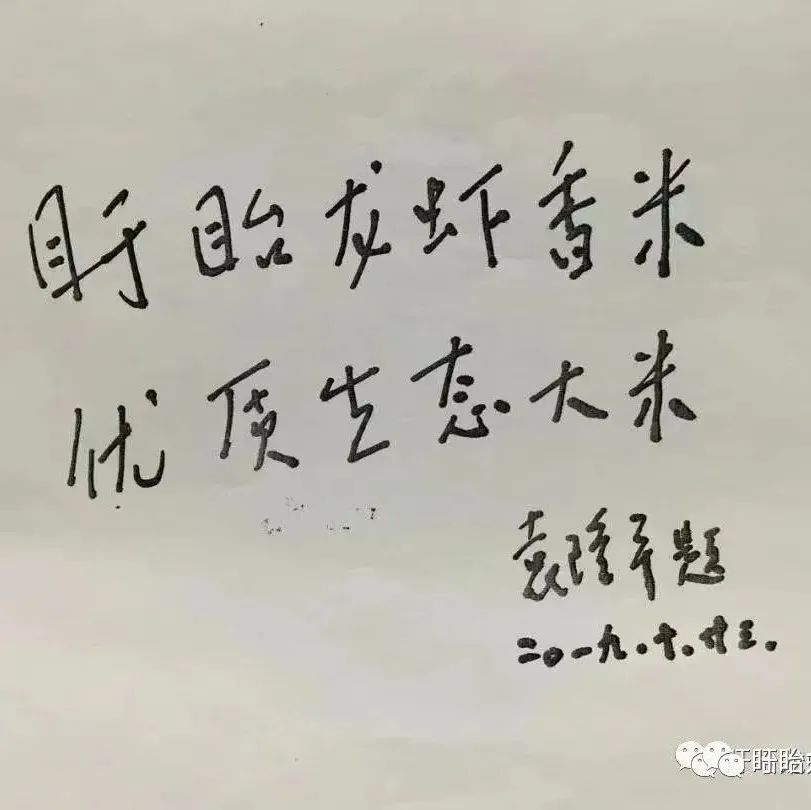 盱眙龙虾香米
优质生态大米
袁隆平题
二〇一九.十.廿三.
盱眙